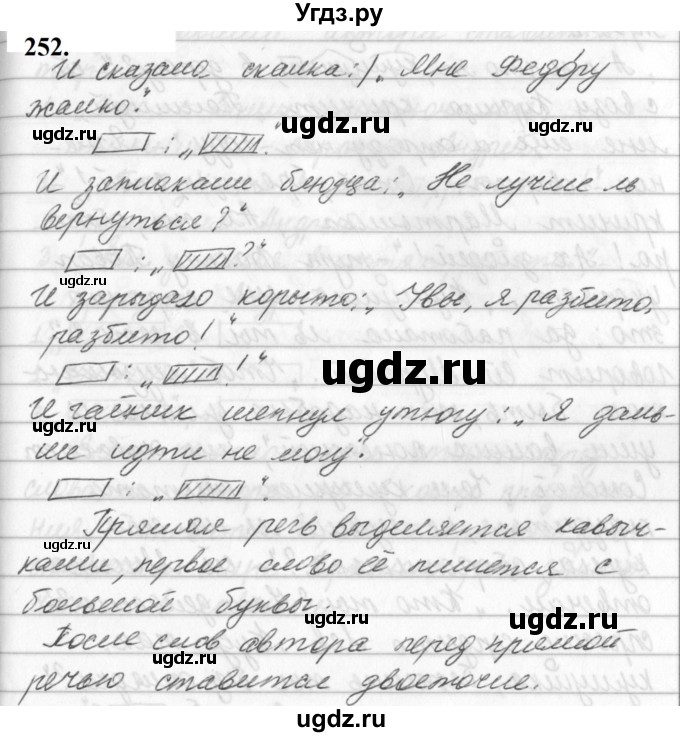 Угдз.ру
252.
И сказала скалка: „ Мне Федору
жалко".
ugdz.ru ugdz.ru ugdz.ru
: „ ".
И заплакали блюдца: „ Не лучше ль
вернуться?"
: „ ?"
И зарыдало корыто: „ Увы, я разбито,
разбито!"
ugdz.ru
: „ !"
ugdz.ru
И чайник шепнул утюгу: „ Я даль-
ugdz.ru
ше идти не могу".
: „ ".
Прямая речь выделяется кавыч-
ugdz.ru
ками, первое слово её пишется с
большой буквы.
ugdz.ru
После слов автора перед прямой
ugdz.ru
речью ставится двоеточие.
ugdz.ru